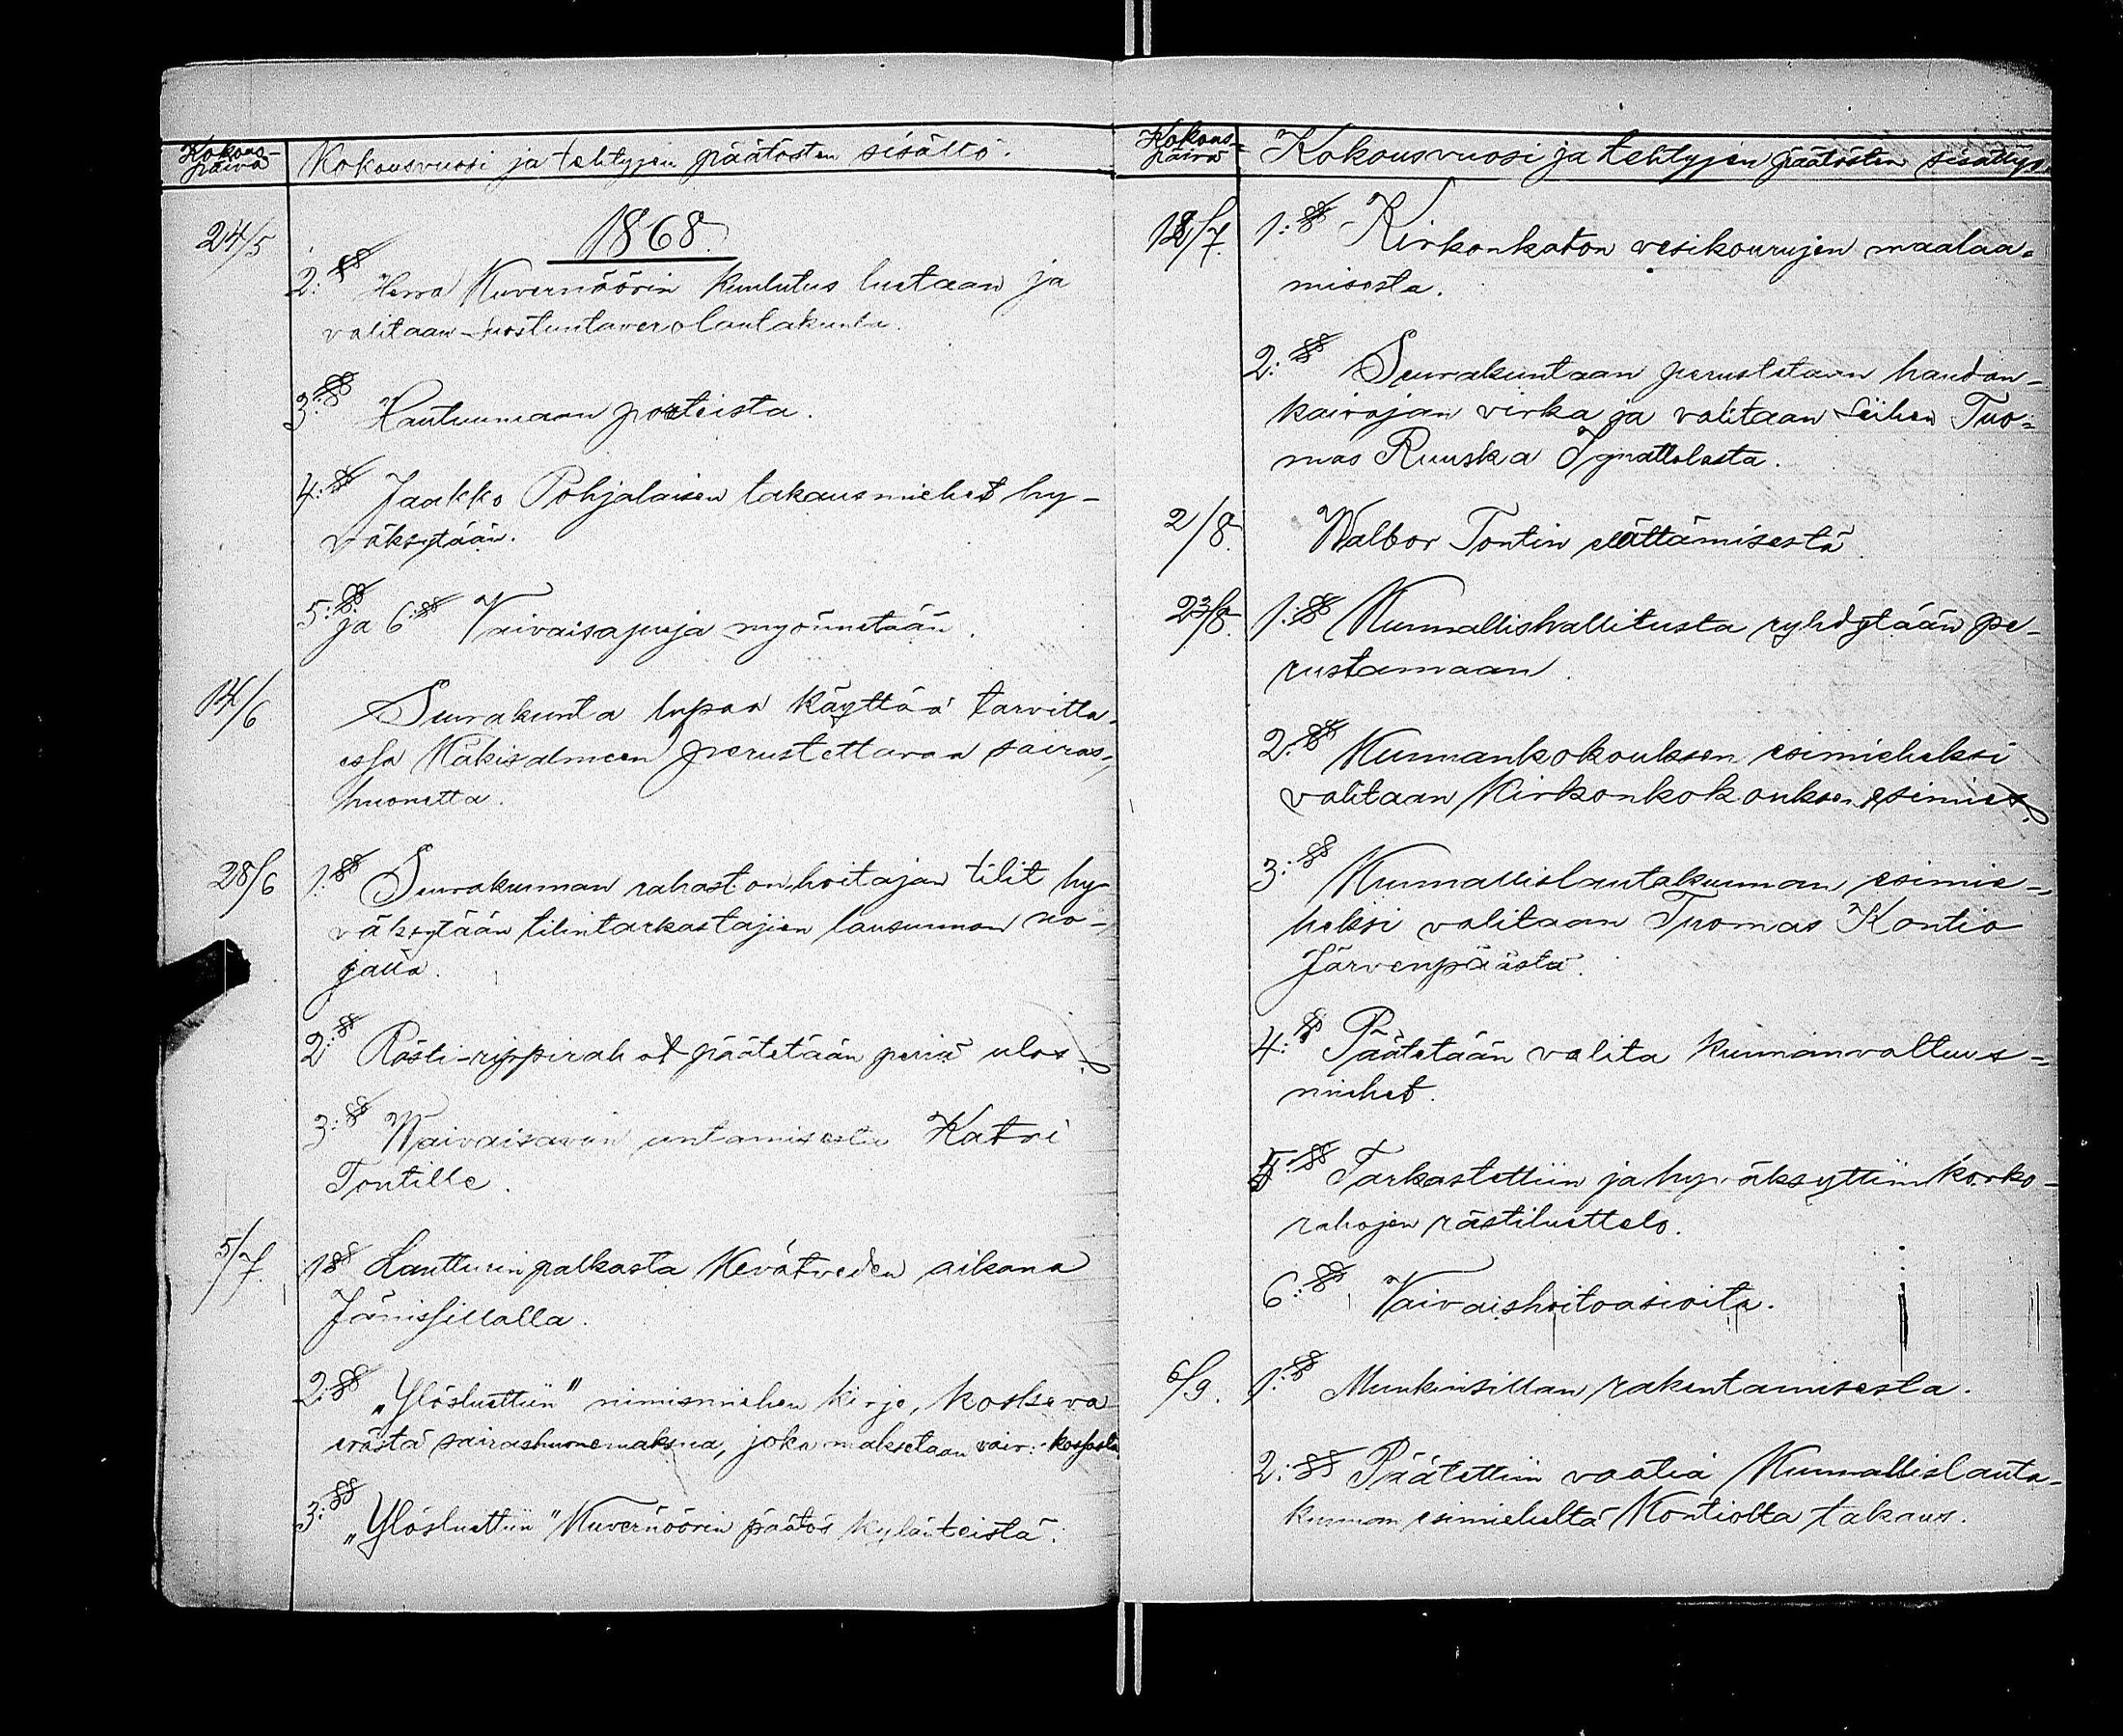 Kokous-
päivä
Kokousvuosi ja tehtyjen päätösten sisältö.
1868.
24/5
2:§§ Herra Kuvernöörin kuulutus luetaan ja
valitaan suostuntaverolautakunta.
3:§§ Hautuumaan porteista.
4:§§ Jaakko Pohjalaisen takausmiehet hy-
väksytään.
5:§§ ja 6:§§ Vaivaisapuja myönnetään.
14/6
Seurakunta lupaa käyttää tarvitta-
essa Käkisalmeen perustettavaa sairas-
huonetta.
28/6
1:§§ Seurakunnan rahastonhoitajan tilit hy-
väksytään tilintarkastajien lausunnon no-
jalla.
2:§§ Rästi-rippirahat päätetään periä ulos.
3:§§ Waivaisavun antamisesta Katri
Tontille.
5/7.
1§§ Lautturin palkasta Kevätveden aikana
Jänissillalla.
2:§§ "Ylösluettiin" nimismiehen kirje, koskeva
erästä sairashuonemaksua, joka maksetaan vaiv: kassasta
3:§§ "Ylösluettiin" Kuvernöörin päätös kyläuteistä.
Kokous-
päivä
Kokousvuosi ja tehtyjen päätösten sisällys.
12/7.
1:§ Kirkonkaton vesikourujen maalaa-
misesta.
2:§§ Seurakuntaan perustetaan haudan-
kaivajan virka ja valitaan siihen Tuo-
mas Ruuska Ignattalasta.
2/8.
Walbor Tontin elättämisestä
23/8.
1:§§ Kunnallishallitusta ryhdytään pe-
rustamaan.
2:§§ Kunnankokouksen esimieheksi
valitaan Kirkonkokouksen esimies.
3:§§ Kunnallislautakunnan esimie-
heksi valitaan Tuomas Kontio
Järvenpäästä.
4:§ Päätetään valita kunnanvaltuus-
miehet.
5:§§ Tarkastettiin ja hyväksyttiin korko-
rahojen rästiluettelo.
6:§§ Vaivaishoitoasioita.
6/9.
1:§§ Munkinsillan rakentamisesta.
2:§§ Päätettiin vaatia Kunnallislauta-
kunnan esimieheltä Kontiolta takaus.